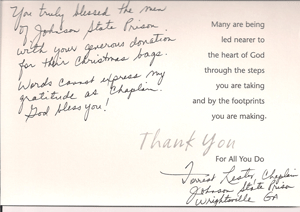 You truly blessed the men
of Johnson State Prison
with your generous donation
for their Christmas bags.
Words cannot express my
gratitude as Chaplain.
God bless you!
Many are being
led nearer to
the heart of God
through the steps
you are taking
and by the footprints
you are making.
Thank You
For All You Do
Lester, Chaplain
Johnson State Prison
Wrightsville GA